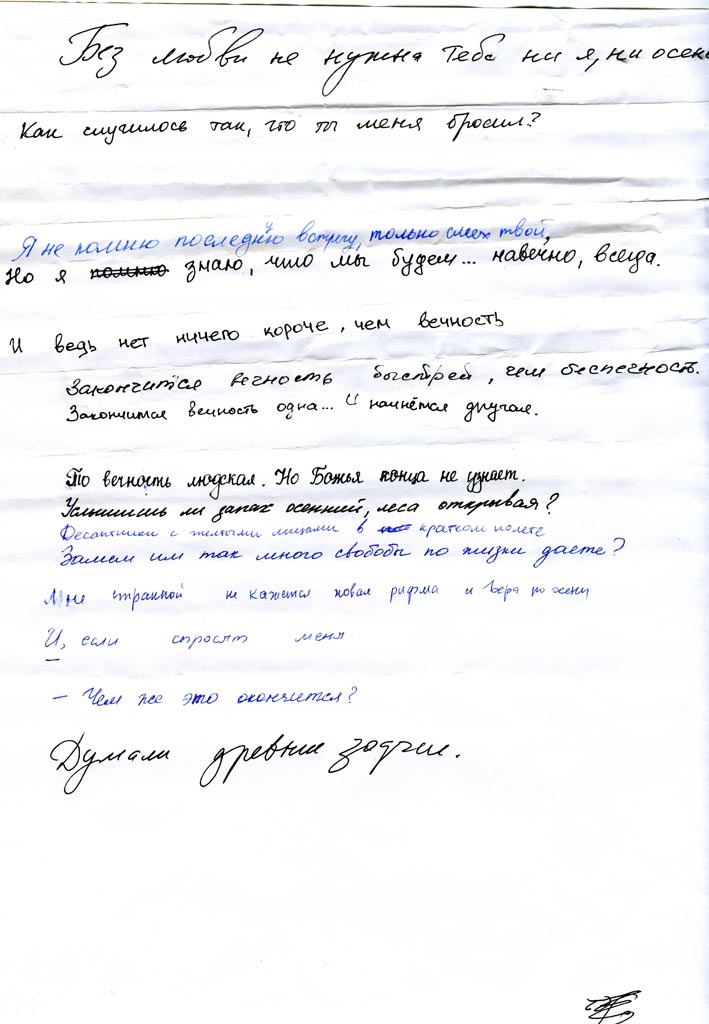 Без любви не нужна тебе ни я, ни осень
Как случилось так, что ты меня бросил?
Я не помню последнюю встречу, только смех твой,
Но я помню знаю, что мы будем... навечно, всегда.
И ведь нет ничего короче, чем вечность
Закончится вечность быстрей, чем беспечность.
Закончится вечность одна... И начнётся другая.
То вечность людская. Но Божья конца не узнает.
Услышишь ли запах осенний, леса открывая?
Десантники с желтыми лицами в кратком полете
Зачем им так много свободы по жизни даете?
Мне странной не кажется новая рифма и вера по осени
И, если спросят меня
– Чем же это окончится?
Думали древние зодчие.